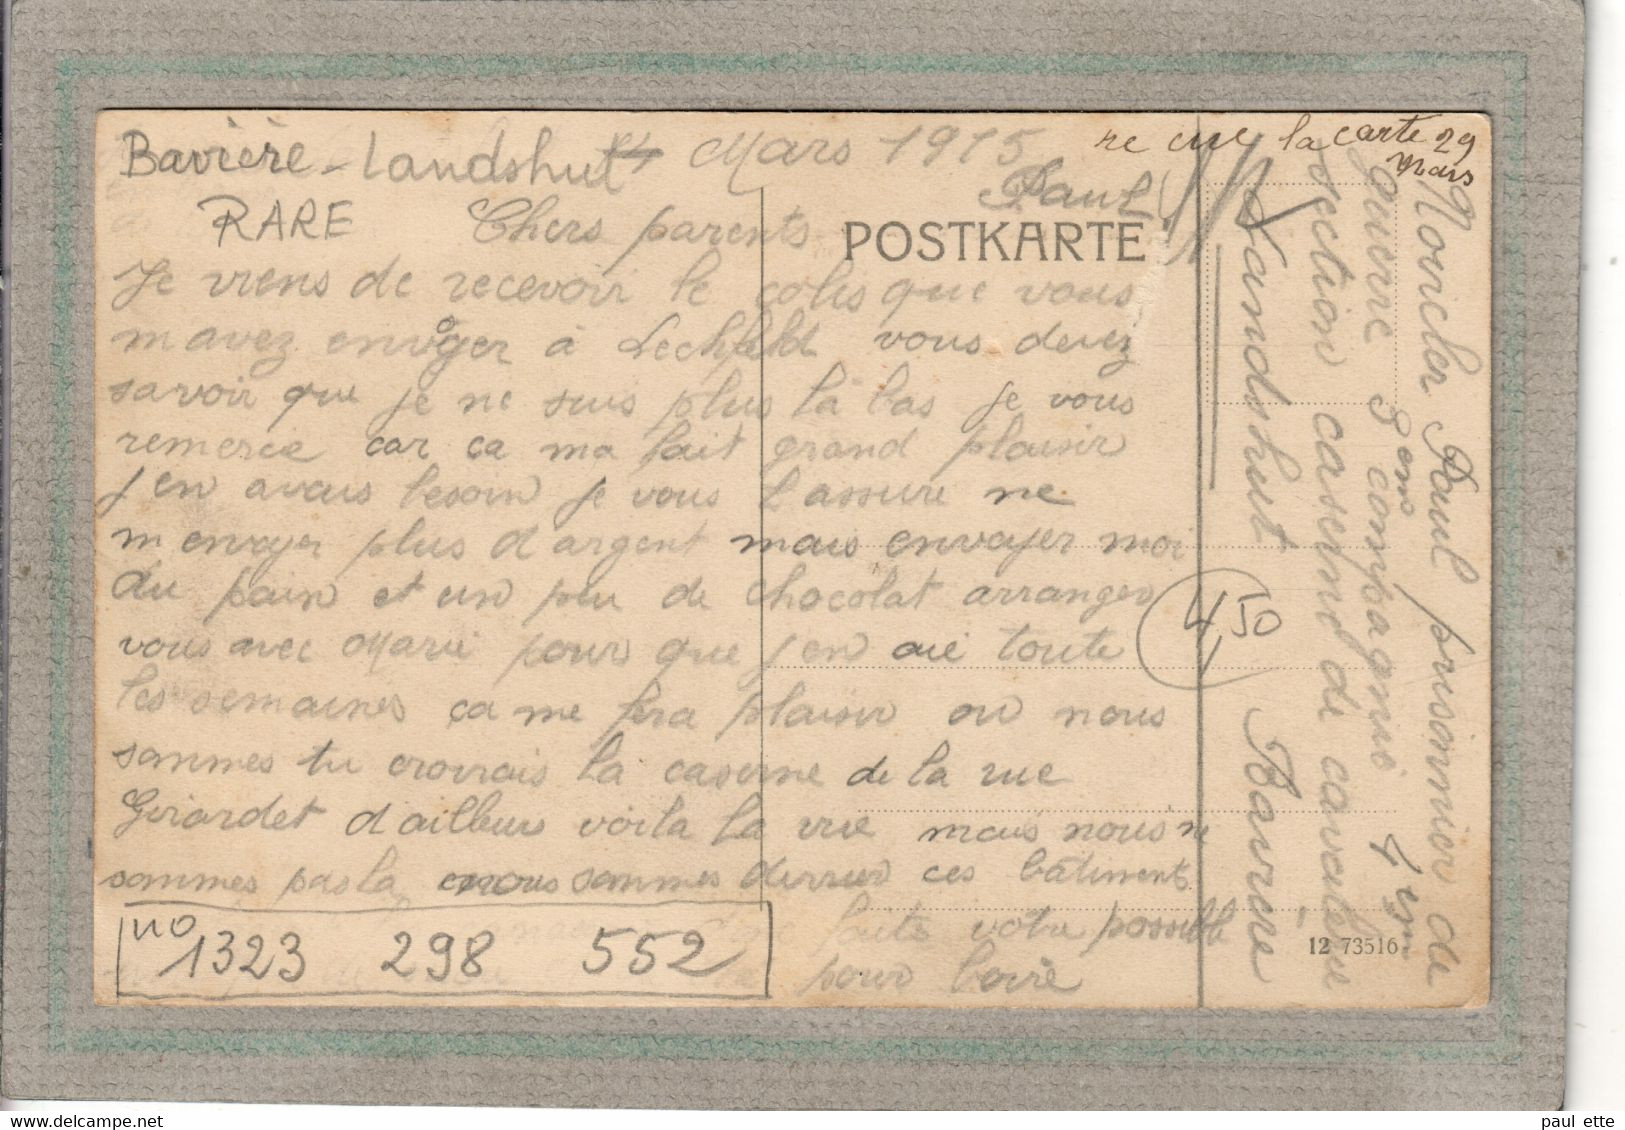 Bavière - Landshut Mars 1915
re cue la carte 29
Mars
RARE
Paul
Chers parents
POSTKARTE
Je viens de recevoir le colis que vous
m avez envoyer à Lechfeld vous devez
savoir que je ne suis plus là bas je vous
remercie car ça ma fait grand plaisir
j en avais besoin je vous l assure ne
m envoyer plus d argent mais envoyer moi
du pain et un peu de chocolat arranger
vous avec Marie pour que j en aie toute
les semaines ça me fera plaisir ou nous
sommes tu croirais la caserne de la rue
Girardet d ailleurs voila la vue mais nous ne
sommes pas la nous sommes derrier ces bâtiments
faite votre possible
pour boire
no 1323 298 552
4,50
Paul prisonnier de
guerre 3em compagnie 4em
section caserne de cavaleri
Landshut Bavière
12 73516
paul ette